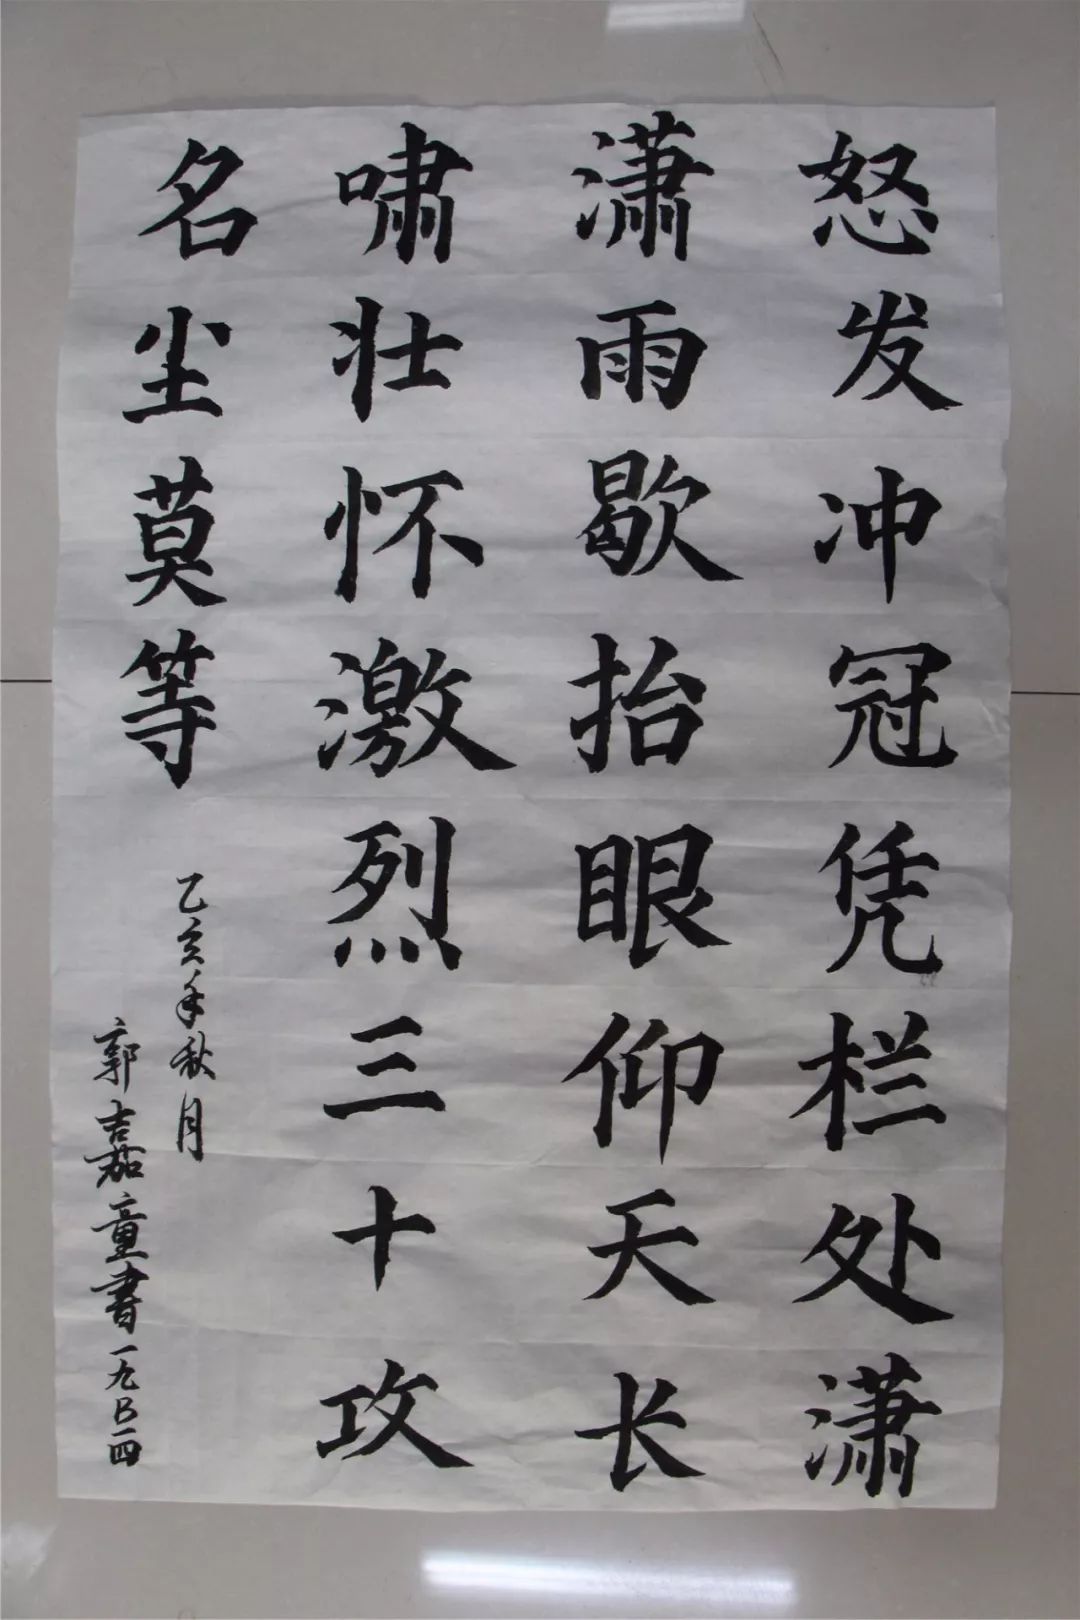 怒发冲冠凭栏处潇
潇雨歇抬眼仰天长
啸壮怀激烈三十攻
名尘莫等
乙亥年秋月
郭嘉童書一九B四